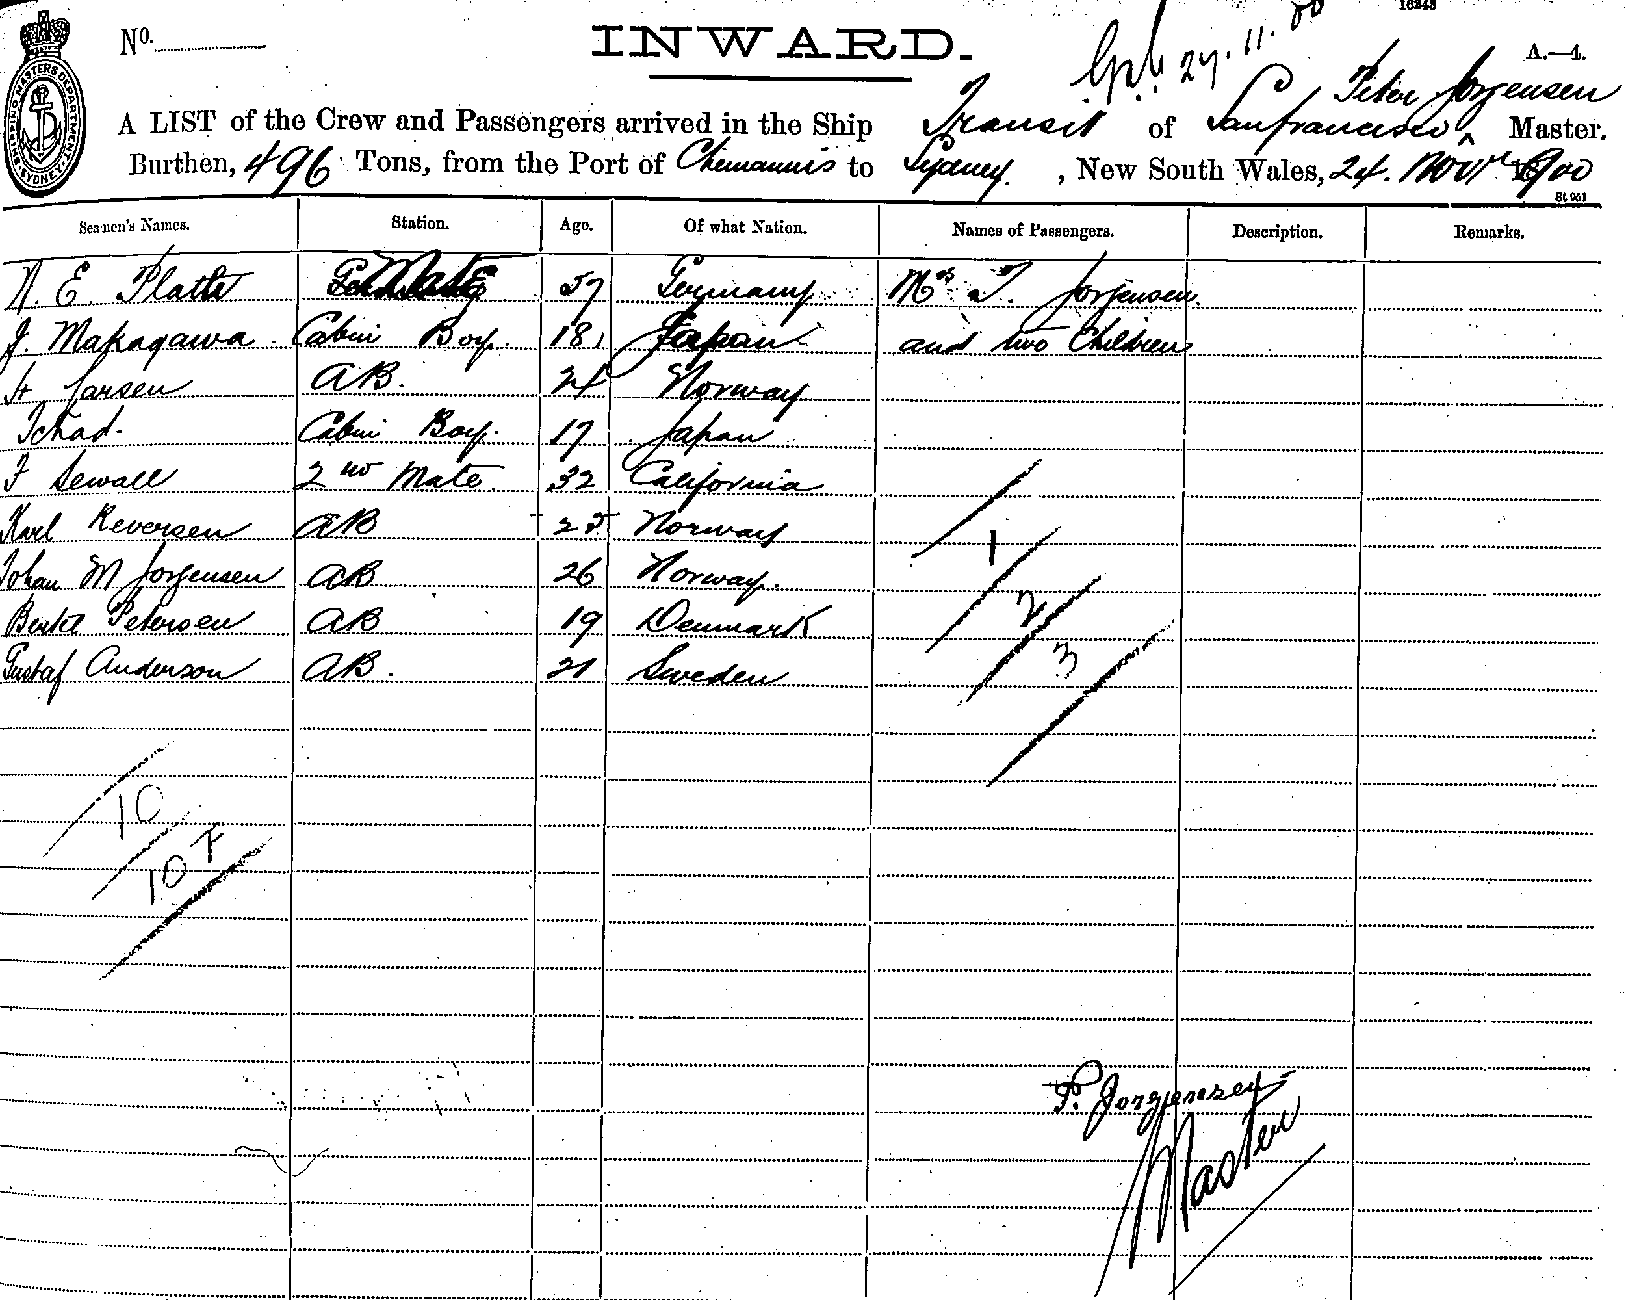 16248
No.
INWARD.
27.11.00
A.—4.
SHIPPING MASTERS DEPARTMENT SYDNEY
Peter Jorgensen
A LIST of the Crew and Passengers arrived in the Ship Transit of Sanfrancisco Master.
Burthen, 496 Tons, from the Port of Chemannis to Sydney, New South Wales, 24. Novr 1900
St 951
Seamen's Names. Station. Age. Of what Nation. Names of Passengers. Description. Remarks.
E. Platte Mate 57 Germany Mrs T. Jorgensen
J. Makagawa Cabin Boy. 18 Japan and two Children
H Larsen AB. 24 Norway
Ichad. Cabin Boy. 17 Japan
F Sewall 2nd Mate. 32 California
Karl Reversen AB 25 Norway
1
Johan M Jorgensen AB 26 Norway.
2
Petersen AB 19 Denmark
3
Gustaf Anderson AB. 21 Sweden
10
10 F
P. Jorgensen
Master